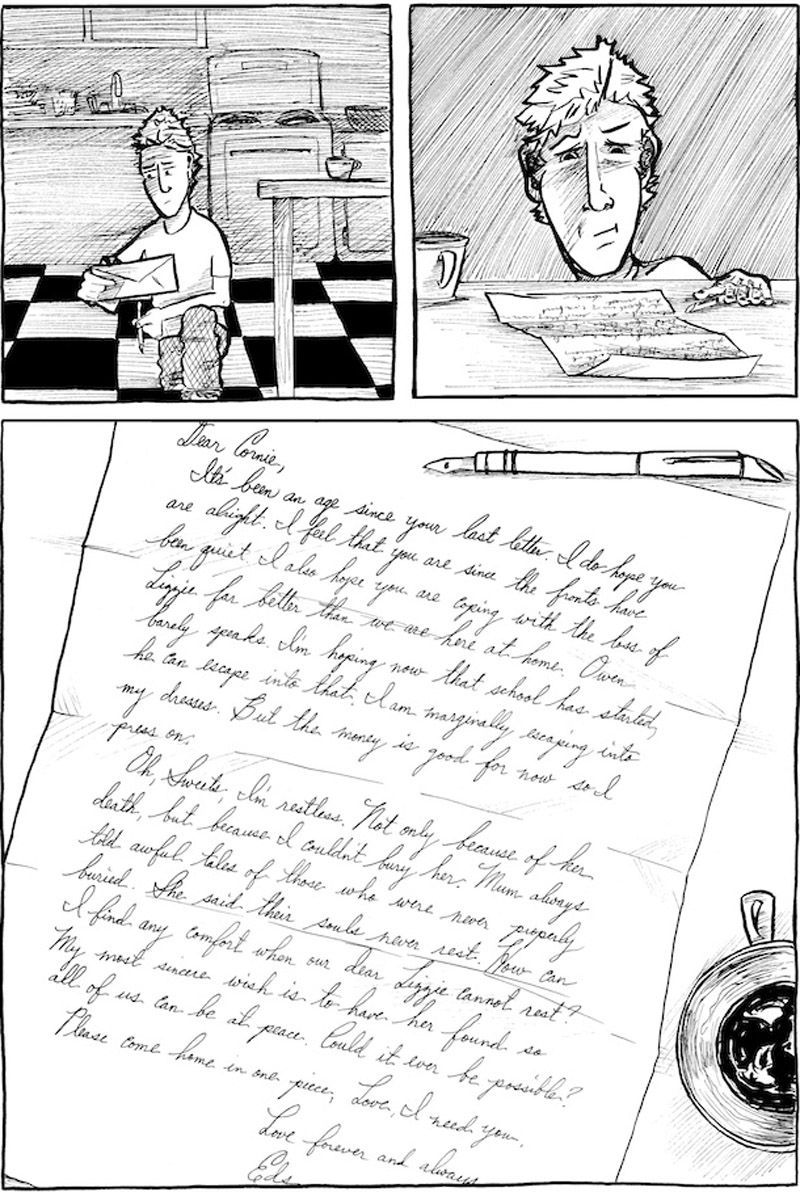 Dear Cornie,
It's been an age since your last letter. I do hope you
are alright. I feel that you are since the fronts have
been quiet. I also hope you are coping with the loss of
Lizzie far better than we are here at home. Owen
barely speaks. I'm hoping now that school has started,
he can escape into that. I am marginally escaping into
my dresses. But the money is good for now so I
press on.
Oh, Sweets, I'm restless. Not only because of her
death, but because I couldn't bury her. Mum always
told awful tales of those who were never properly
buried. She said their souls never rest. How can
I find any comfort when our dear Lizzie cannot rest?
My most sincere wish is to have her found so
all of us can be at peace. Could it ever be possible?
Please come home in one piece, Love, I need you.
Love forever and always
Eds